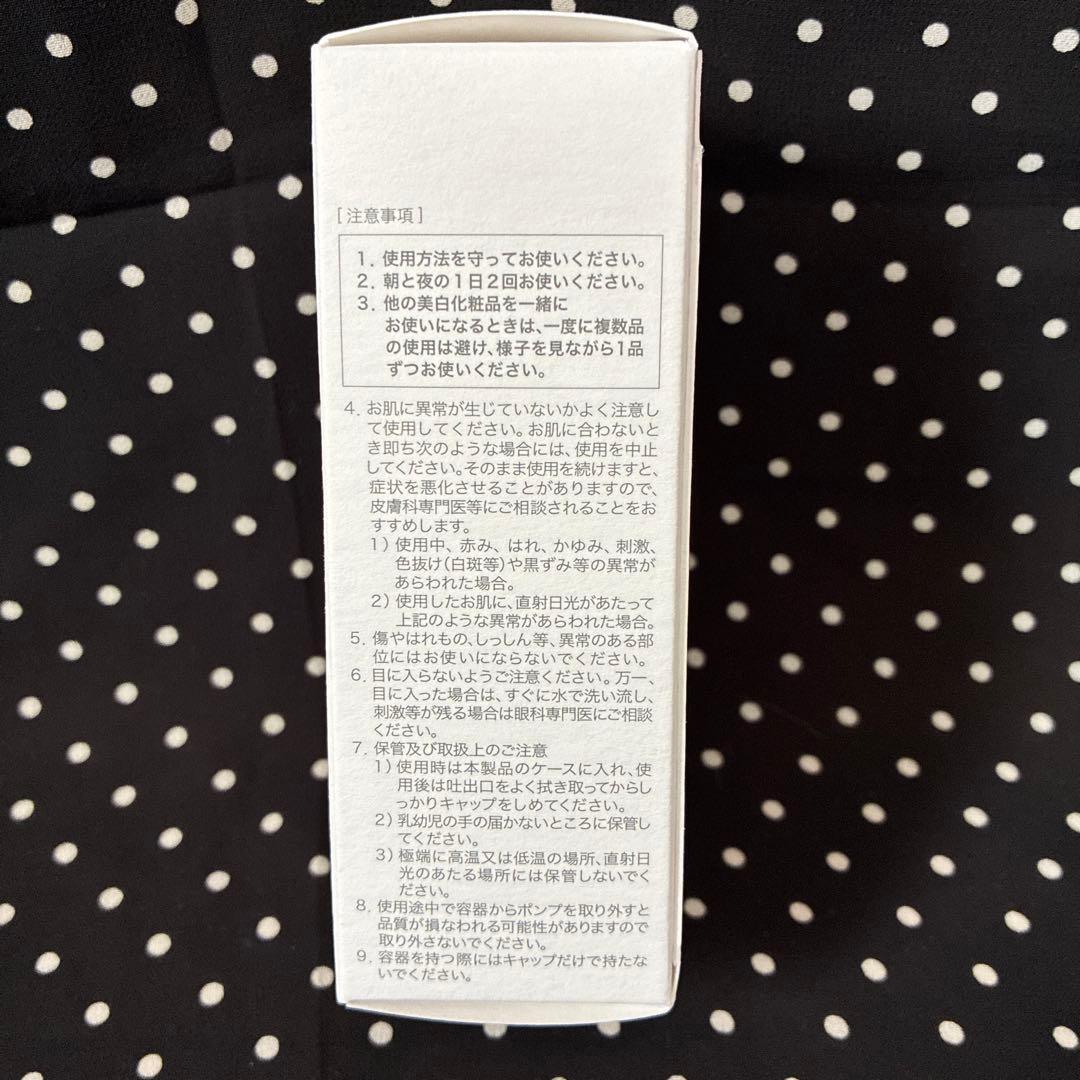 [注意事項]
1. 使用方法を守ってお使いください。
2. 朝と夜の1日2回お使いください。
3. 他の美白化粧品を一緒に
お使いになるときは、一度に複数品
の使用は避け、様子を見ながら1品
ずつお使いください。
4. お肌に異常が生じていないかよく注意し
て使用してください。お肌に合わないと
き即ち次のような場合には、使用を中止
してください。そのまま使用を続けますと、
症状を悪化させることがありますので、
皮膚科専門医等にご相談されることをお
すすめします。
1) 使用中、赤み、はれ、かゆみ、刺激、
色抜け(白斑等)や黒ずみ等の異常が
があらわれた場合。
2) 使用したお肌に、直射日光があたって
上記のような異常があらわれた場合。
5. 傷やはれもの、しっしん等、異常のある部
位にはお使いにならないでください。
6. 目に入らないようご注意ください。万一、
目に入った場合は、すぐに水で洗い流し、
刺激等が残る場合は眼科専門医にご相談
ください。
7. 保管及び取扱上のご注意
1) 使用時は本製品のケースに入れ、使
用後は吐出口をよく拭き取ってからし
っかりキャップをしめてください。
2) 乳幼児の手の届かないところに保管し
てください。
3) 極端に高温又は低温の場所、直射日
光のあたる場所には保管しないでく
ださい。
8. 使用途中で容器からポンプを取り外すと
品質が損なわれる可能性がありますので
取り外さないでください。
9. 容器を持つ際にはキャップだけで持たな
いでください。